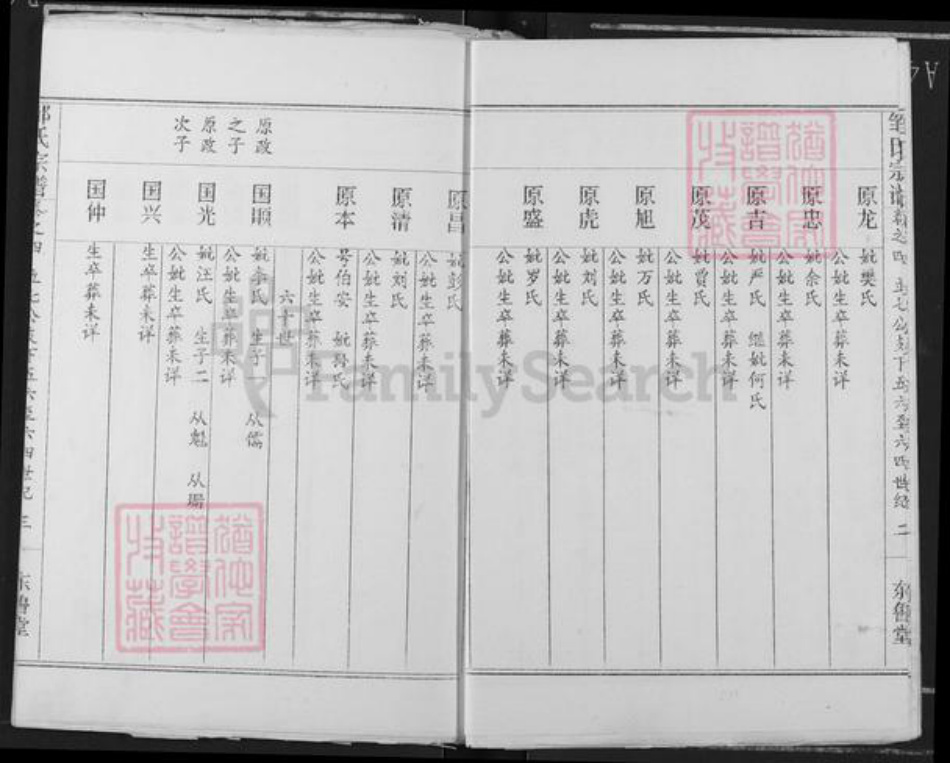 邹氏宗谱
东鲁堂
原龙
妣樊氏
公妣生卒葬未详
原忠
妣余氏
公妣生卒葬未详
原吉
妣严氏 继妣何氏
公妣生卒葬未详
原茂
妣贾氏
公妣生卒葬未详
原旭
妣万氏
公妣生卒葬未详
原虎
妣刘氏
公妣生卒葬未详
原盛
妣岁氏
公妣生卒葬未详
原昌
妣彭氏
公妣生卒葬未详
原清
妣刘氏
公妣生卒葬未详
原本
号伯安 妣孙氏
公妣生卒葬未详
六十世
原政
之子
国顺
妣李氏 生子 从儒
公妣生卒葬未详
原政
次子
国光
妣汪氏 生子二 从魁 从珊
公妣生卒葬未详
国兴
生卒葬未详
国仲
生卒葬未详
邹氏宗谱
三
东鲁堂
猶他家
譜學會
收藏
猶他家
譜學會
收藏
FamilySearch